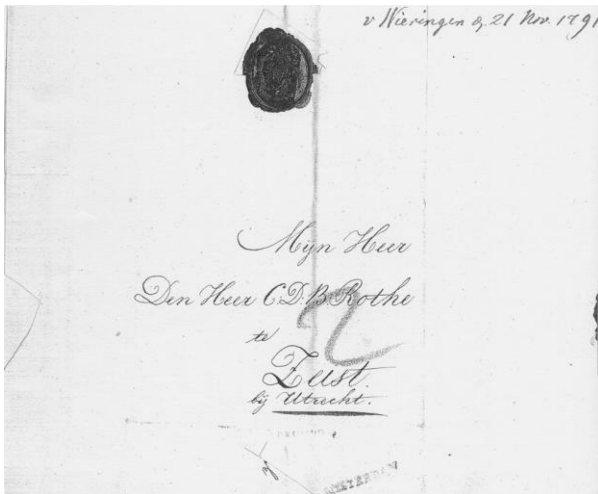 v Wieringen dj 21 Nov. 1791
Mijn Heer
Den Heer C.D.B. Rothe
te
Zeist.
bij Utrecht.
AMSTERDAM